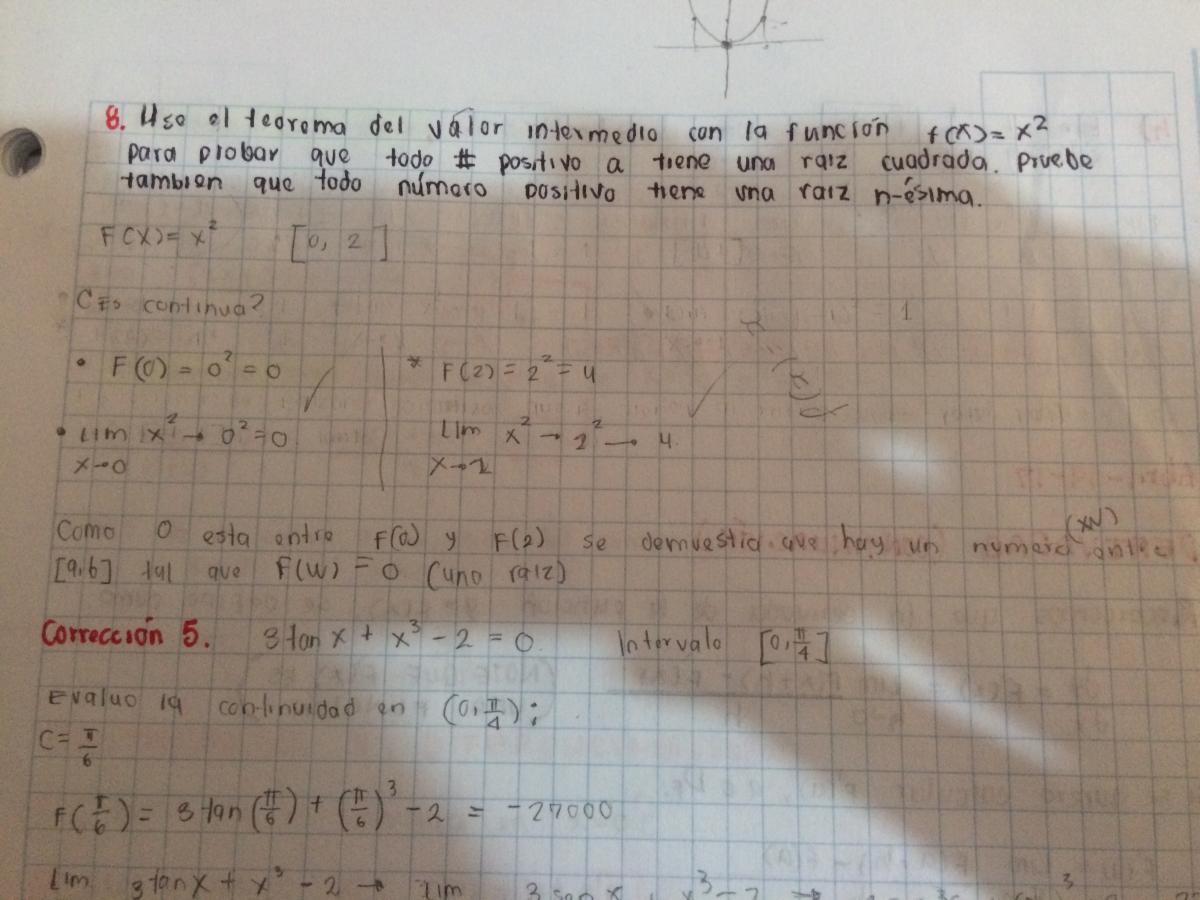 8. Uso el teorema del valor intermedio con la función f(x) = x²
para probar que todo # positivo a tiene una raiz cuadrada. Pruebe
tambien que todo número positivo tiene una raiz n-ésima.
F(x) = x² [0, 2]
¿Es continua?
• F(0) = 0² = 0 * F(2) = 2² = 4
• Lim x² → 0² = 0 Lim x² → 2² → 4
x→0 x→2
(xN)
Como 0 esta entre F(0) y F(2) se demuestra que hay un numero
[a,b] tal que F(W) = 0 (uno raiz)
Corrección 5. 3 tan x + x³ - 2 = 0 Intervalo [0, π/4]
Evaluo la continuidad en (0, π/4):
C = π/6
F(π/6) = 3 tan(π/6) + (π/6)³ - 2 = -27000
Lim 3 tan x + x³ - 2 → Lim 3 sen x x³ - 2